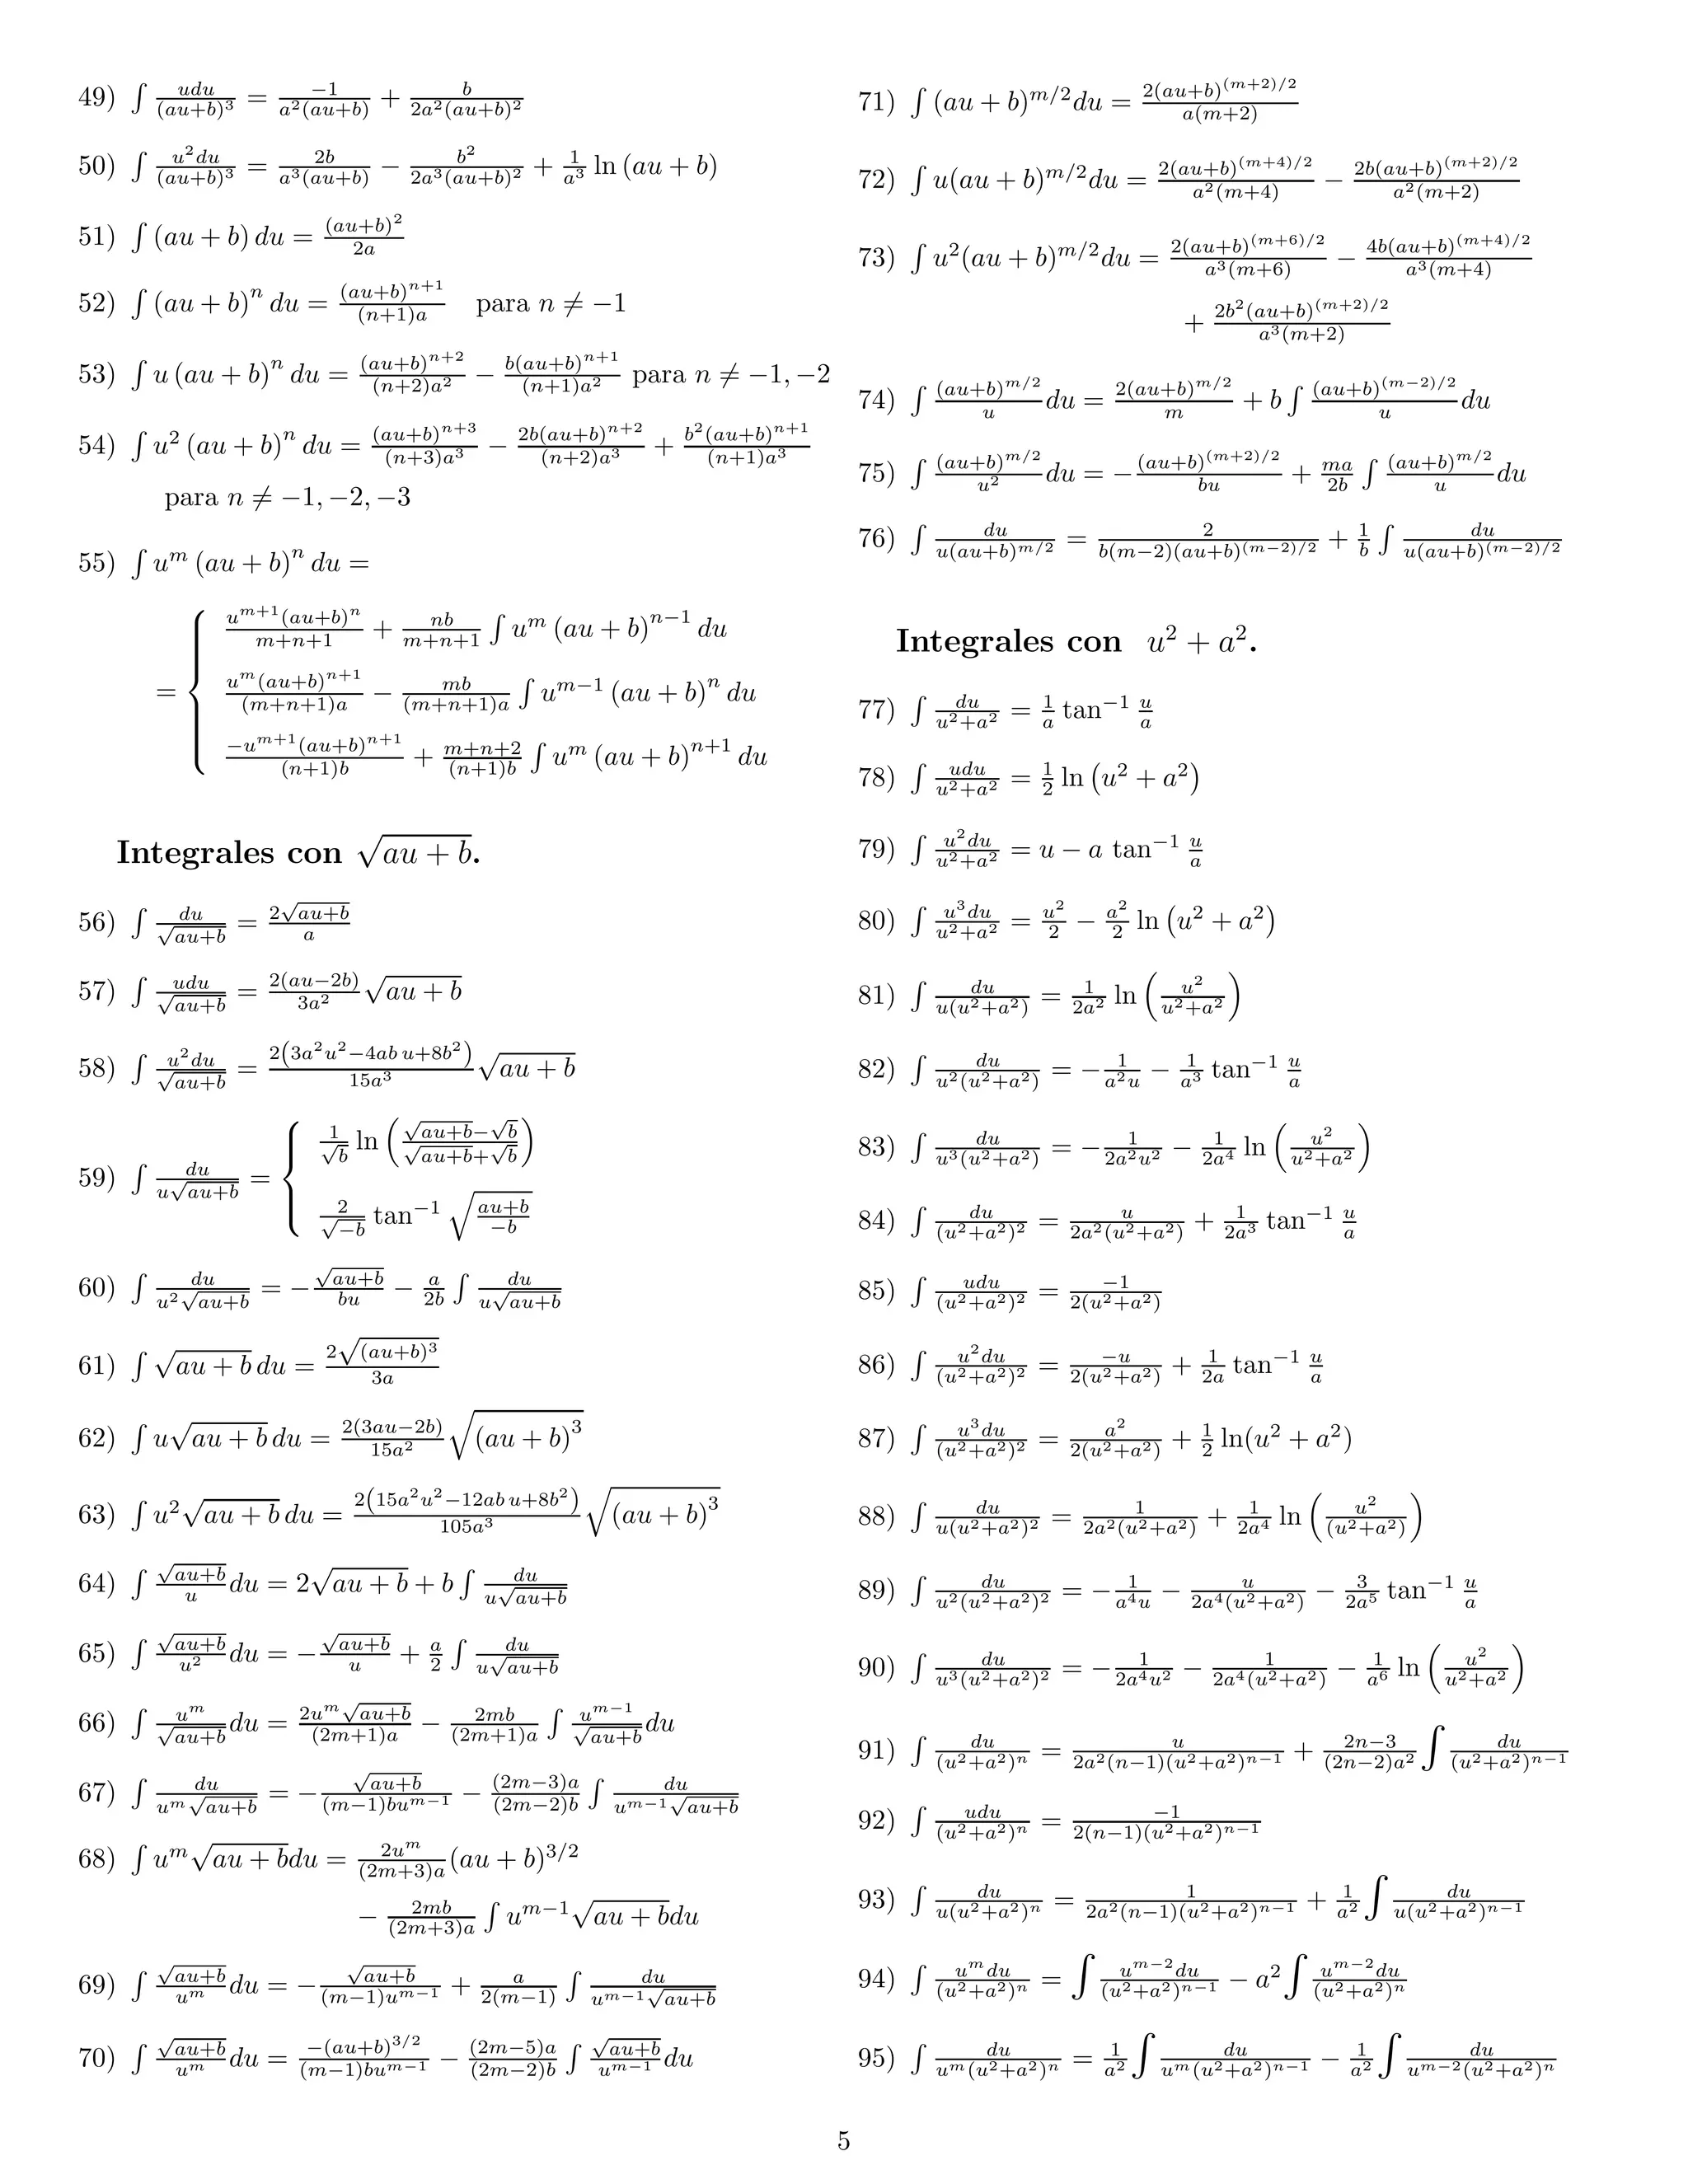 49) $\int \frac{udu}{(au+b)^3} = \frac{-1}{a^2(au+b)} + \frac{b}{2a^2(au+b)^2}$
50) $\int \frac{u^2du}{(au+b)^3} = \frac{2b}{a^3(au+b)} - \frac{b^2}{2a^3(au+b)^2} + \frac{1}{a^3} \ln (au+b)$
51) $\int (au+b)\, du = \frac{(au+b)^2}{2a}$
52) $\int (au+b)^n\, du = \frac{(au+b)^{n+1}}{(n+1)a}$ para $n \neq -1$
53) $\int u (au+b)^n\, du = \frac{(au+b)^{n+2}}{(n+2)a^2} - \frac{b(au+b)^{n+1}}{(n+1)a^2}$ para $n \neq -1, -2$
54) $\int u^2 (au+b)^n\, du = \frac{(au+b)^{n+3}}{(n+3)a^3} - \frac{2b(au+b)^{n+2}}{(n+2)a^3} + \frac{b^2(au+b)^{n+1}}{(n+1)a^3}$
para $n \neq -1, -2, -3$
55) $\int u^m (au+b)^n\, du =$
$= \begin{cases} \frac{u^{m+1}(au+b)^n}{m+n+1} + \frac{nb}{m+n+1} \int u^m (au+b)^{n-1}\, du \\ \frac{u^m(au+b)^{n+1}}{(m+n+1)a} - \frac{mb}{(m+n+1)a} \int u^{m-1} (au+b)^n\, du \\ \frac{-u^{m+1}(au+b)^{n+1}}{(n+1)b} + \frac{m+n+2}{(n+1)b} \int u^m (au+b)^{n+1}\, du \end{cases}$
Integrales con $\sqrt{au+b}$.
56) $\int \frac{du}{\sqrt{au+b}} = \frac{2\sqrt{au+b}}{a}$
57) $\int \frac{udu}{\sqrt{au+b}} = \frac{2(au-2b)}{3a^2} \sqrt{au+b}$
58) $\int \frac{u^2du}{\sqrt{au+b}} = \frac{2(3a^2u^2-4ab\,u+8b^2)}{15a^3} \sqrt{au+b}$
59) $\int \frac{du}{u\sqrt{au+b}} = \begin{cases} \frac{1}{\sqrt{b}} \ln \left( \frac{\sqrt{au+b}-\sqrt{b}}{\sqrt{au+b}+\sqrt{b}} \right) \\ \frac{2}{\sqrt{-b}} \tan^{-1} \sqrt{\frac{au+b}{-b}} \end{cases}$
60) $\int \frac{du}{u^2\sqrt{au+b}} = -\frac{\sqrt{au+b}}{bu} - \frac{a}{2b} \int \frac{du}{u\sqrt{au+b}}$
61) $\int \sqrt{au+b}\, du = \frac{2\sqrt{(au+b)^3}}{3a}$
62) $\int u\sqrt{au+b}\, du = \frac{2(3au-2b)}{15a^2} \sqrt{(au+b)^3}$
63) $\int u^2\sqrt{au+b}\, du = \frac{2(15a^2u^2-12ab\,u+8b^2)}{105a^3} \sqrt{(au+b)^3}$
64) $\int \frac{\sqrt{au+b}}{u} du = 2\sqrt{au+b} + b \int \frac{du}{u\sqrt{au+b}}$
65) $\int \frac{\sqrt{au+b}}{u^2} du = -\frac{\sqrt{au+b}}{u} + \frac{a}{2} \int \frac{du}{u\sqrt{au+b}}$
66) $\int \frac{u^m}{\sqrt{au+b}} du = \frac{2u^m\sqrt{au+b}}{(2m+1)a} - \frac{2mb}{(2m+1)a} \int \frac{u^{m-1}}{\sqrt{au+b}} du$
67) $\int \frac{du}{u^m\sqrt{au+b}} = -\frac{\sqrt{au+b}}{(m-1)bu^{m-1}} - \frac{(2m-3)a}{(2m-2)b} \int \frac{du}{u^{m-1}\sqrt{au+b}}$
68) $\int u^m\sqrt{au+b}du = \frac{2u^m}{(2m+3)a} (au+b)^{3/2}$
$- \frac{2mb}{(2m+3)a} \int u^{m-1}\sqrt{au+b}du$
69) $\int \frac{\sqrt{au+b}}{u^m} du = -\frac{\sqrt{au+b}}{(m-1)u^{m-1}} + \frac{a}{2(m-1)} \int \frac{du}{u^{m-1}\sqrt{au+b}}$
70) $\int \frac{\sqrt{au+b}}{u^m} du = \frac{-(au+b)^{3/2}}{(m-1)bu^{m-1}} - \frac{(2m-5)a}{(2m-2)b} \int \frac{\sqrt{au+b}}{u^{m-1}} du$
71) $\int (au+b)^{m/2} du = \frac{2(au+b)^{(m+2)/2}}{a(m+2)}$
72) $\int u(au+b)^{m/2} du = \frac{2(au+b)^{(m+4)/2}}{a^2(m+4)} - \frac{2b(au+b)^{(m+2)/2}}{a^2(m+2)}$
73) $\int u^2(au+b)^{m/2} du = \frac{2(au+b)^{(m+6)/2}}{a^3(m+6)} - \frac{4b(au+b)^{(m+4)/2}}{a^3(m+4)}$
$+ \frac{2b^2(au+b)^{(m+2)/2}}{a^3(m+2)}$
74) $\int \frac{(au+b)^{m/2}}{u} du = \frac{2(au+b)^{m/2}}{m} + b \int \frac{(au+b)^{(m-2)/2}}{u} du$
75) $\int \frac{(au+b)^{m/2}}{u^2} du = -\frac{(au+b)^{(m+2)/2}}{bu} + \frac{ma}{2b} \int \frac{(au+b)^{m/2}}{u} du$
76) $\int \frac{du}{u(au+b)^{m/2}} = \frac{2}{b(m-2)(au+b)^{(m-2)/2}} + \frac{1}{b} \int \frac{du}{u(au+b)^{(m-2)/2}}$
Integrales con $u^2 + a^2$.
77) $\int \frac{du}{u^2+a^2} = \frac{1}{a} \tan^{-1} \frac{u}{a}$
78) $\int \frac{udu}{u^2+a^2} = \frac{1}{2} \ln (u^2+a^2)$
79) $\int \frac{u^2du}{u^2+a^2} = u - a \tan^{-1} \frac{u}{a}$
80) $\int \frac{u^3du}{u^2+a^2} = \frac{u^2}{2} - \frac{a^2}{2} \ln (u^2+a^2)$
81) $\int \frac{du}{u(u^2+a^2)} = \frac{1}{2a^2} \ln \left( \frac{u^2}{u^2+a^2} \right)$
82) $\int \frac{du}{u^2(u^2+a^2)} = -\frac{1}{a^2u} - \frac{1}{a^3} \tan^{-1} \frac{u}{a}$
83) $\int \frac{du}{u^3(u^2+a^2)} = -\frac{1}{2a^2u^2} - \frac{1}{2a^4} \ln \left( \frac{u^2}{u^2+a^2} \right)$
84) $\int \frac{du}{(u^2+a^2)^2} = \frac{u}{2a^2(u^2+a^2)} + \frac{1}{2a^3} \tan^{-1} \frac{u}{a}$
85) $\int \frac{udu}{(u^2+a^2)^2} = \frac{-1}{2(u^2+a^2)}$
86) $\int \frac{u^2du}{(u^2+a^2)^2} = \frac{-u}{2(u^2+a^2)} + \frac{1}{2a} \tan^{-1} \frac{u}{a}$
87) $\int \frac{u^3du}{(u^2+a^2)^2} = \frac{a^2}{2(u^2+a^2)} + \frac{1}{2} \ln(u^2+a^2)$
88) $\int \frac{du}{u(u^2+a^2)^2} = \frac{1}{2a^2(u^2+a^2)} + \frac{1}{2a^4} \ln \left( \frac{u^2}{(u^2+a^2)} \right)$
89) $\int \frac{du}{u^2(u^2+a^2)^2} = -\frac{1}{a^4u} - \frac{u}{2a^4(u^2+a^2)} - \frac{3}{2a^5} \tan^{-1} \frac{u}{a}$
90) $\int \frac{du}{u^3(u^2+a^2)^2} = -\frac{1}{2a^4u^2} - \frac{1}{2a^4(u^2+a^2)} - \frac{1}{a^6} \ln \left( \frac{u^2}{u^2+a^2} \right)$
91) $\int \frac{du}{(u^2+a^2)^n} = \frac{u}{2a^2(n-1)(u^2+a^2)^{n-1}} + \frac{2n-3}{(2n-2)a^2} \int \frac{du}{(u^2+a^2)^{n-1}}$
92) $\int \frac{udu}{(u^2+a^2)^n} = \frac{-1}{2(n-1)(u^2+a^2)^{n-1}}$
93) $\int \frac{du}{u(u^2+a^2)^n} = \frac{1}{2a^2(n-1)(u^2+a^2)^{n-1}} + \frac{1}{a^2} \int \frac{du}{u(u^2+a^2)^{n-1}}$
94) $\int \frac{u^mdu}{(u^2+a^2)^n} = \int \frac{u^{m-2}du}{(u^2+a^2)^{n-1}} - a^2 \int \frac{u^{m-2}du}{(u^2+a^2)^n}$
95) $\int \frac{du}{u^m(u^2+a^2)^n} = \frac{1}{a^2} \int \frac{du}{u^m(u^2+a^2)^{n-1}} - \frac{1}{a^2} \int \frac{du}{u^{m-2}(u^2+a^2)^n}$
5